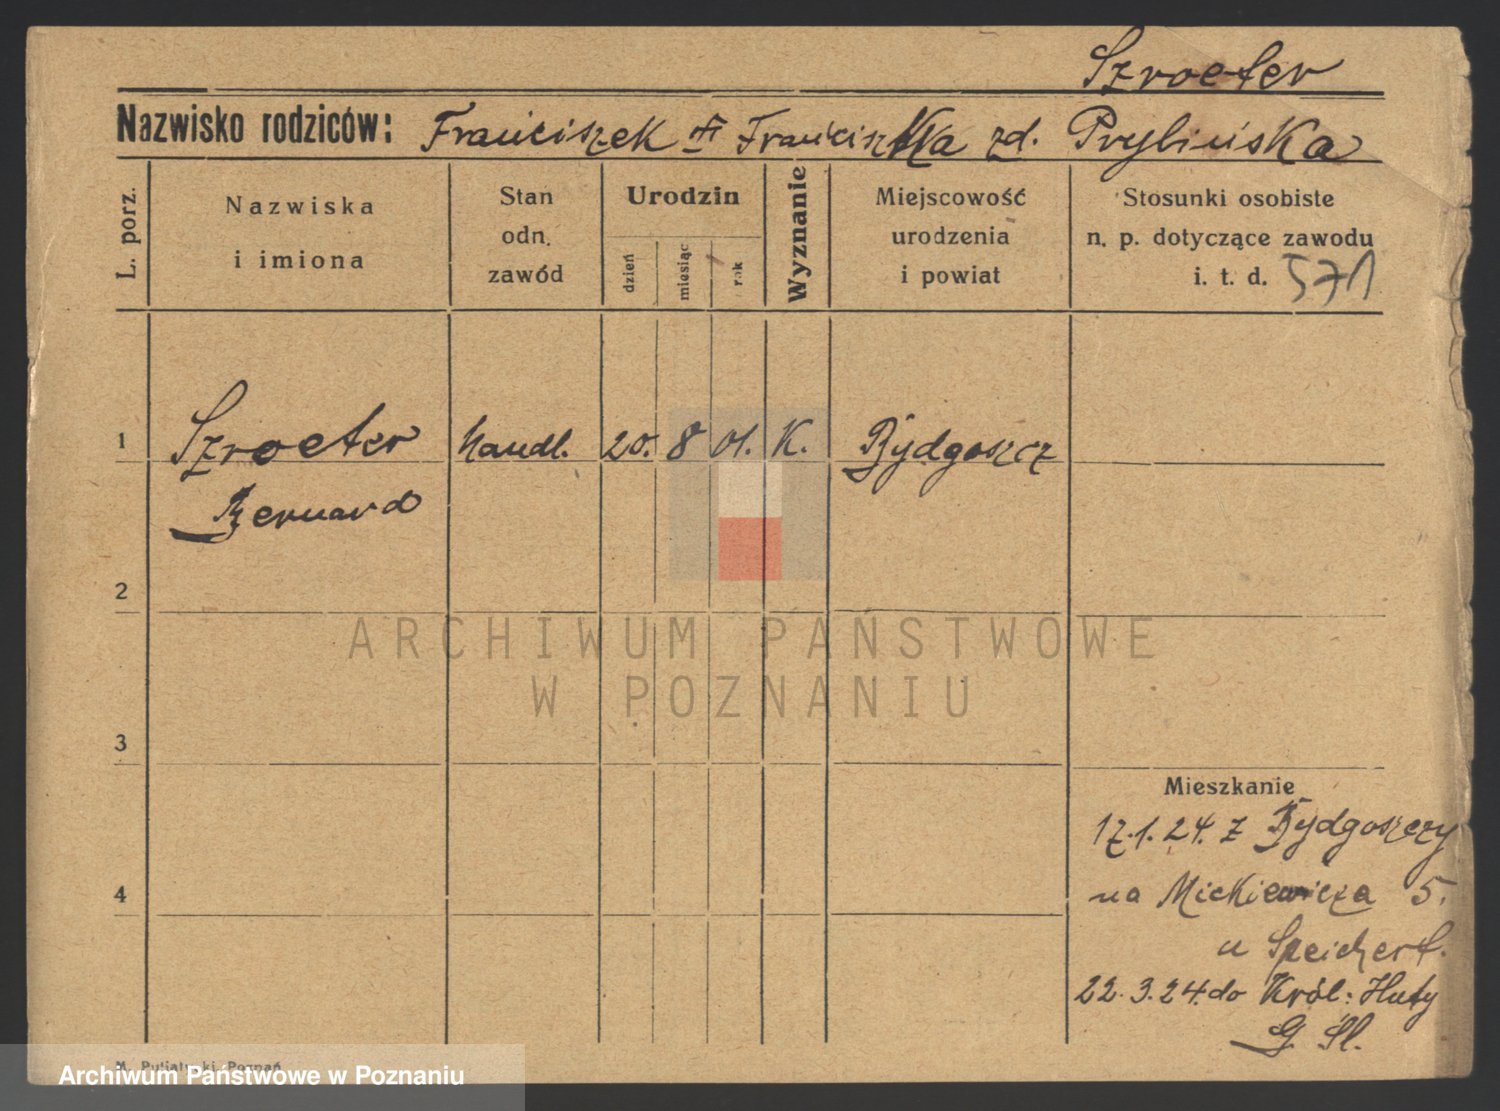 Szroeter
Nazwisko rodziców: Franciszek i Franciszka zd. Prylińska
L. porz.
Nazwiska
i imiona
Stan
odn.
zawód
Urodzin
dzień
miesiąc
rok
Wyznanie
Miejscowość
urodzenia
i powiat
Stosunki osobiste
n. p. dotyczące zawodu
i. t. d. 571
1 Szroeter handl. 20. 8 01. K. Bydgoszcz
Bernard
2
ARCHIWUM PAŃSTWOWE
W POZNANIU
3
Mieszkanie
17.1.24. z Bydgoszczy
4
na Mickiewicza 5.
u Speichert.
22.3.24. do Król: Huty
G. Śl.
Poznań
Archiwum Państwowe w Poznaniu